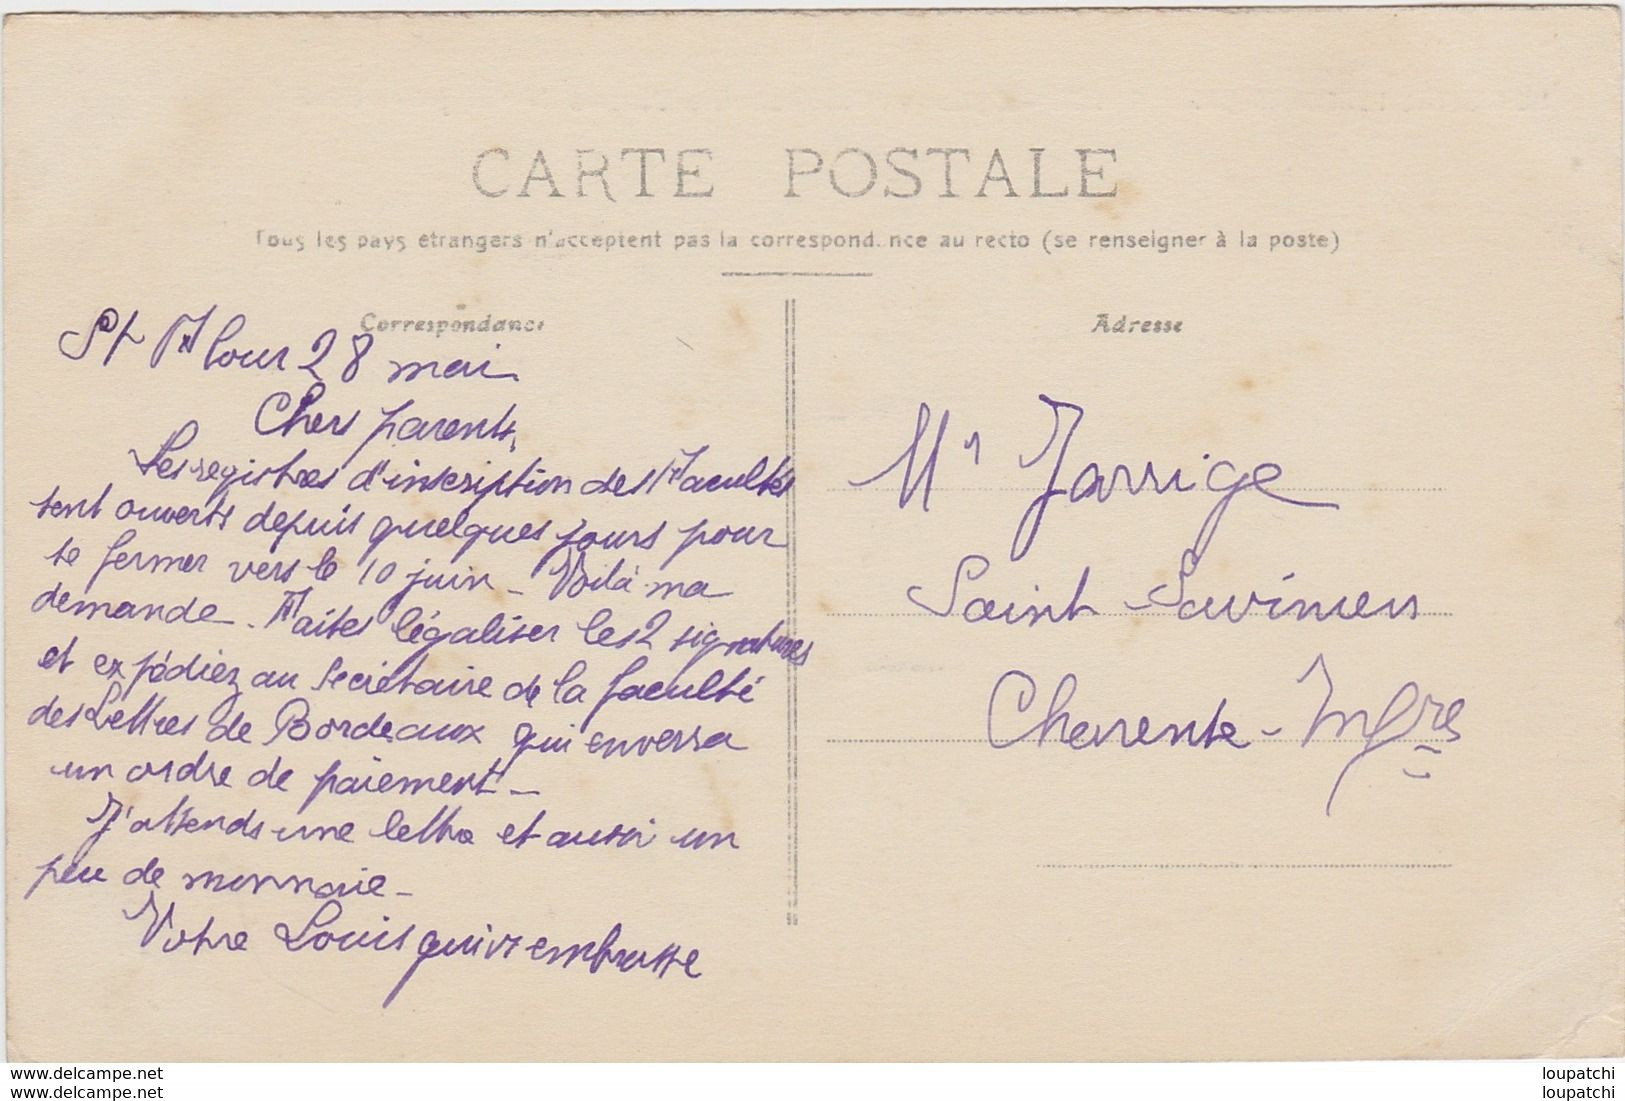 CARTE POSTALE
Tous les pays étrangers n'acceptent pas la correspondance au recto (se renseigner à la poste)
Correspondance
St Flour 28 mai
Chers parents,
Les registres d'inscription des Facultés
sont ouverts depuis quelques jours pour
se fermer vers le 10 juin - Voilà ma
demande. Faites légaliser les 2 signatures
et expédiez au secrétaire de la faculté
des Lettres de Bordeaux qui enverra
un ordre de paiement -
J'attends une lettre et aussi un
peu de monnaie -
Votre Louis qui vs embrasse
Adresse
Mr Jarrige
Saint-Savinien
Charente-Infre
www.delcampe.net
www.delcampe.net
loupatchi
loupatchi